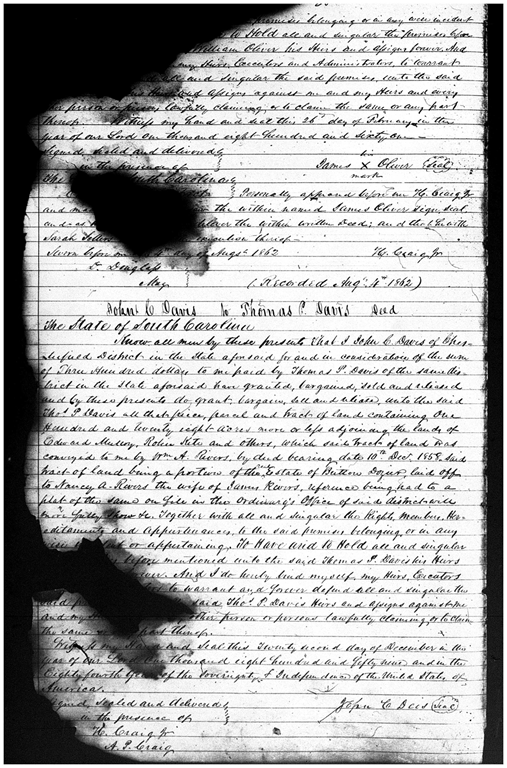 premises belonging or in any wise incident
to Hold all and singular the premises before
William Oliver his Heirs and Assigns forever. And
my Heirs, Executors and Administrators, to warrant
all and singular the said premises, unto the said
and Assigns against me and my Heirs and every
person or persons lawfully claiming, or to claim the same, or any part
thereof. Witness my Hand and seal this 26th day of February in the
year of our Lord One thousand eight Hundred and Sixty one
Signed, Sealed and delivered
in the presence of James his X mark Oliver (Seal)
The South Carolina
Personally appeared before me H. Craig Jr
and made the within named James Oliver sign, seal
and as deliver the within written Deed; and that he with
Sarah execution thereof.
Sworn before me 4th day of Augst 1862 H. Craig Jr
D. Douglass
May (Recorded Augt 4th 1862)
John C Davis to Thomas P. Davis Deed
The State of South Carolina
Know all men by these presents that I John C. Davis of Ches-
terfield District in the State aforesaid for and in consideration of the sum
of Three Hundred dollars to me paid by Thomas P. Davis of the same Dis-
trict in the State aforesaid have granted, bargained, sold and released
and by these presents do grant, bargain, sell and release, unto the said
Thos P Davis all that piece, parcel and tract of land containing One
Hundred and twenty eight acres more or less adjoining the lands of
Edward and others, which said tract of land was
conveyed to me by Wm A. Rivers, by deed bearing date 10th Decr 1858, said
tract of land being a portion of the real Estate of laid off
to Nancy A Rivers the wife of James Rivers, reference being had to a
plat of the same on file in the Ordinary's Office of said district will
more fully show. Together with all and singular the Rights, Members, Her-
editaments and Appurtenances, to the said premises belonging, or in any
or appertaining. To Have and to Hold all and singular
before mentioned unto the said Thomas P. Davis his Heirs
forever. And I do hereby bind myself, my Heirs, Executors
to warrant and forever defend all and singular the
said said Thos. P. Davis Heirs and Assigns against me
and my other person or persons lawfully claiming, or to claim
the same or part thereof.
Witness my Hand and Seal this Twenty second day of December in the
year of our Lord One thousand eight Hundred and fifty nine and in the
Eighty fourth year of the Sovereignty & Independence of the United States of
America.
Signed, Sealed and delivered John C Davis (Seal)
in the presence of
H. Craig Jr
A. P. Craig